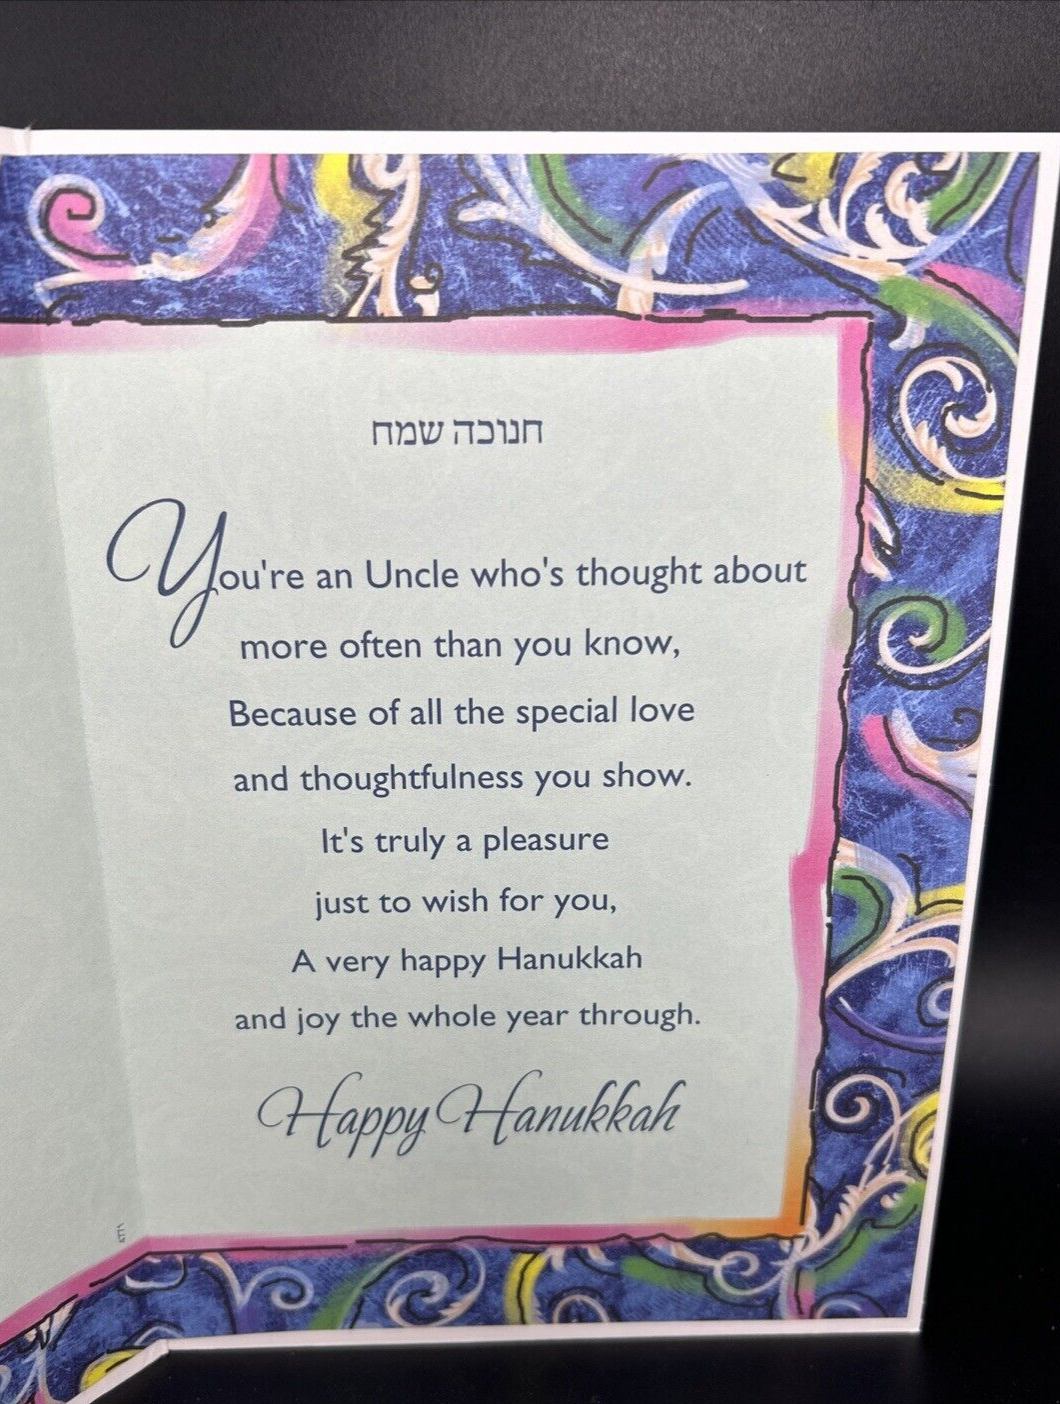 חנוכה שמח
You're an Uncle who's thought about
more often than you know,
Because of all the special love
and thoughtfulness you show.
It's truly a pleasure
just to wish for you,
A very happy Hanukkah
and joy the whole year through.
Happy Hanukkah